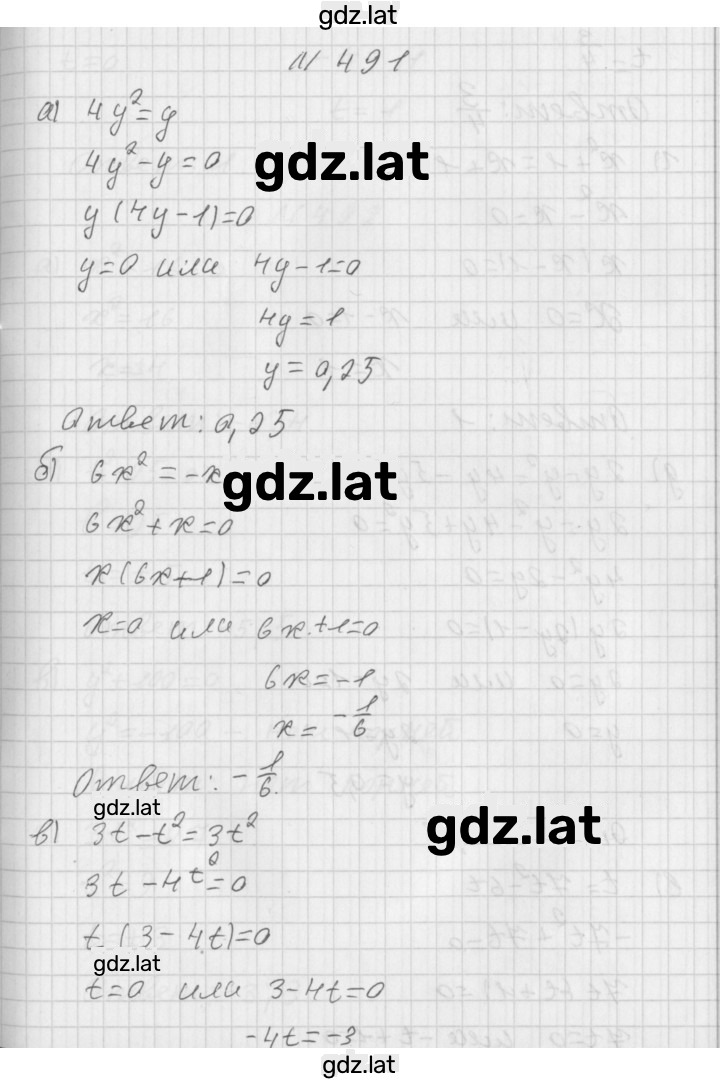 gdz.lat
N 491
а) 4y²=y
4y²-y=0
gdz.lat
y(4y-1)=0
y=0 или 4y-1=0
4y=1
y=0,25
Ответ: 0,25
б) 6x²=-x
gdz.lat
6x²+x=0
x(6x+1)=0
x=0 или 6x+1=0
6x=-1
x=-1/6
Ответ: -1/6.
gdz.lat
в) 3t-t²=3t²
gdz.lat
3t-4t²=0
t(3-4t)=0
gdz.lat
t=0 или 3-4t=0
-4t=-3
gdz.lat